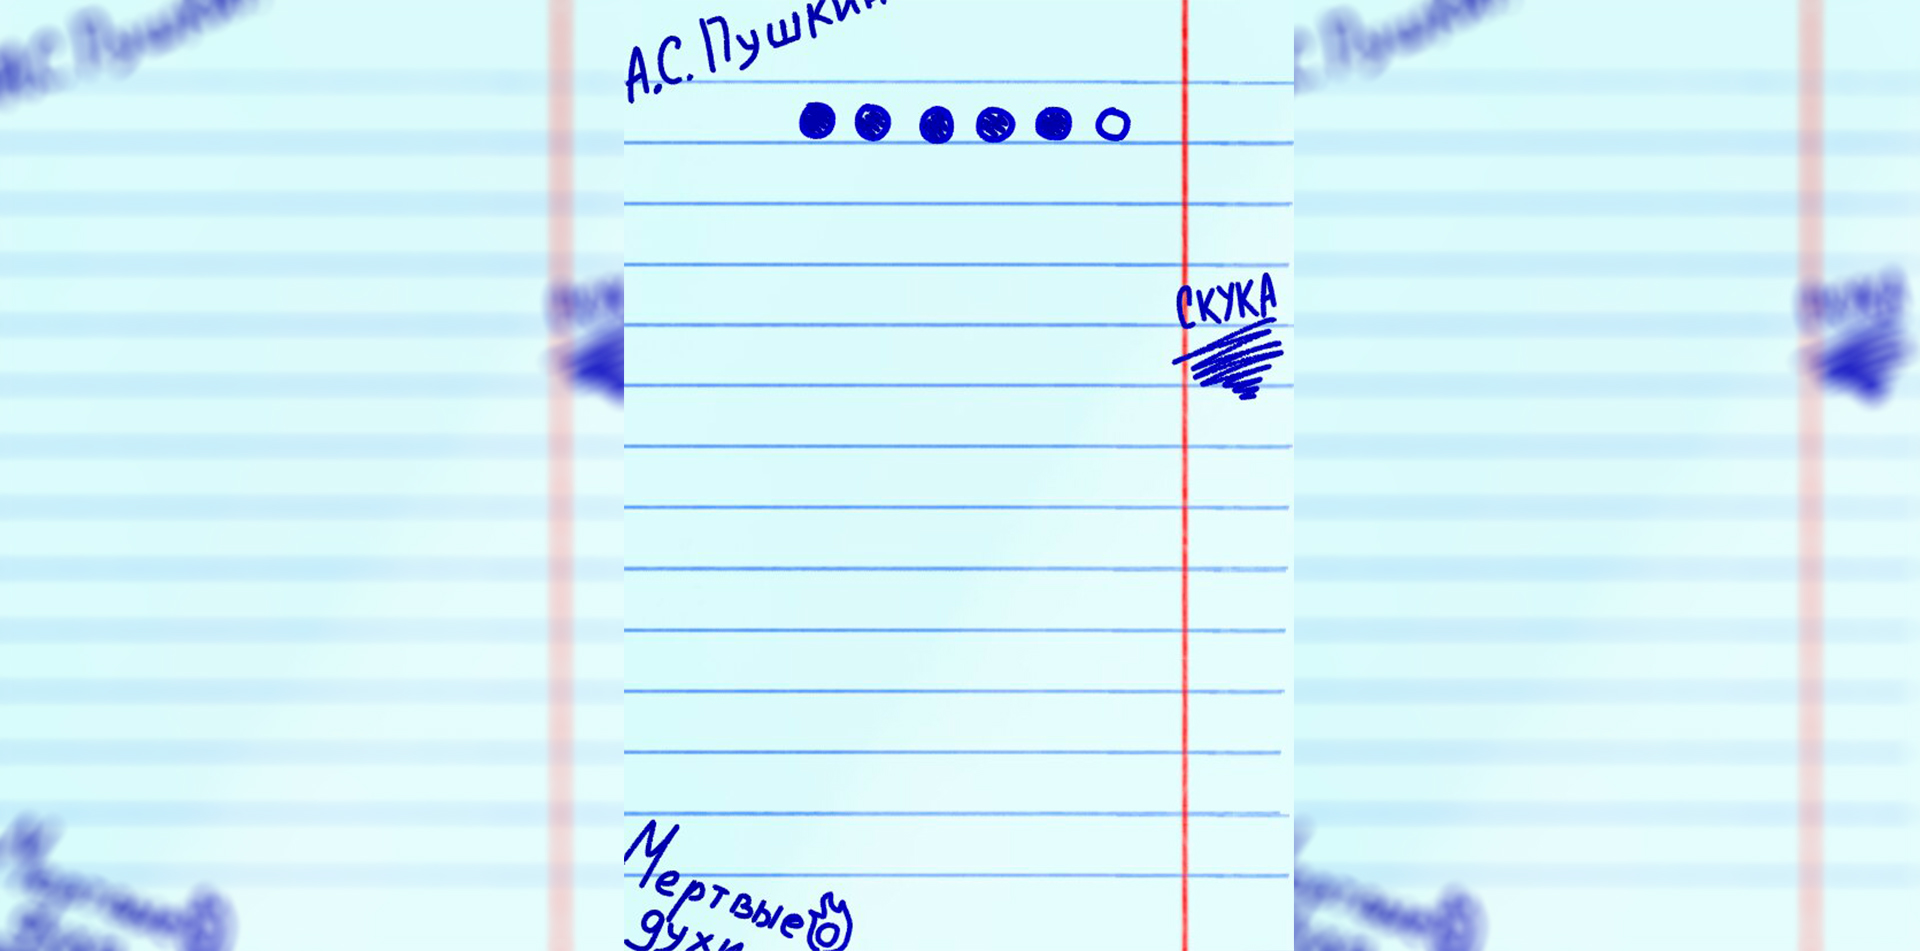 А.С. Пушкин
СКУКА
Мертвые
духи